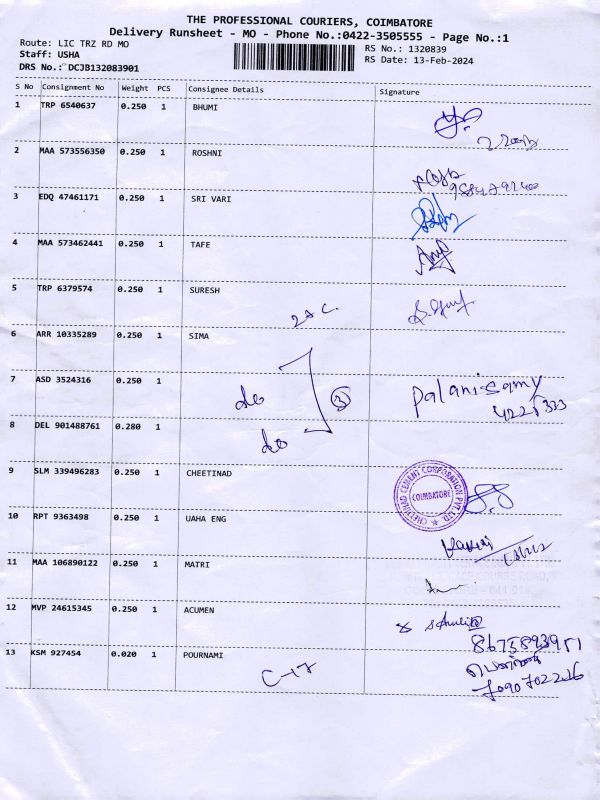 THE PROFESSIONAL COURIERS, COIMBATORE
Delivery Runsheet - MO - Phone No.:0422-3505555 - Page No.:1
Route: LIC TRZ RD MO
RS No.: 1320839
Staff: USHA
RS Date: 13-Feb-2024
DRS No.: DCJB132083901
S No Consignment No Weight PCS Consignee Details Signature
1 TRP 6540637 0.250 1 BHUMI
2 MAA 573556350 0.250 1 ROSHNI
3 EDQ 47461171 0.250 1 SRI VARI
4 MAA 573462441 0.250 1 TAFE
5 TRP 6379574 0.250 1 SURESH
6 ARR 10335289 0.250 1 SIMA
7 ASD 3524316 0.250 1 do 3 Palanisamy
8 DEL 901488761 0.280 1 do
9 SLM 339496283 0.250 1 CHEETINAD
CHETTINAD CEMENT CORPORATION PVT LTD.
COIMBATORE
10 RPT 9363498 0.250 1 UAHA ENG
11 MAA 106890122 0.250 1 MATRI
12 MVP 24615345 0.250 1 ACUMEN
8675893951
13 KSM 927454 0.020 1 POURNAMI
C-17